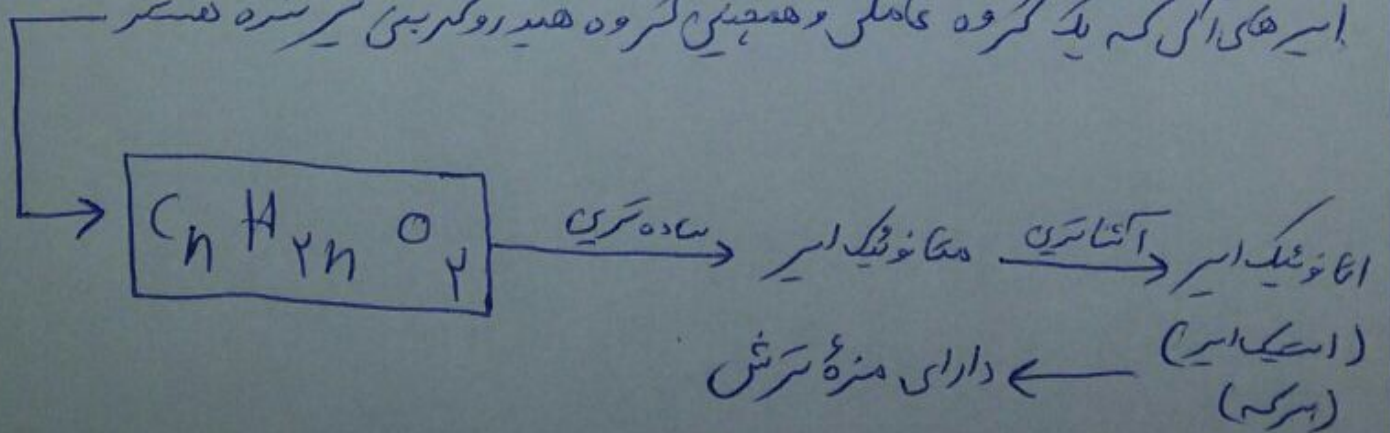 اسیدهای آلی که یک گروه عاملی و همچنین گروه هیدروکربنی سیر شده هستند
CnH۲nO۲ ساده‌ترین متانوئیک اسید آشناترین اتانوئیک اسید
(استیک اسید)
دارای مزهٔ ترش
(سرکه)